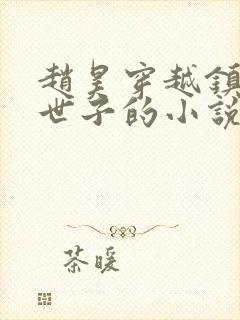 趙昊穿越鎮
世子的小說
茶暖